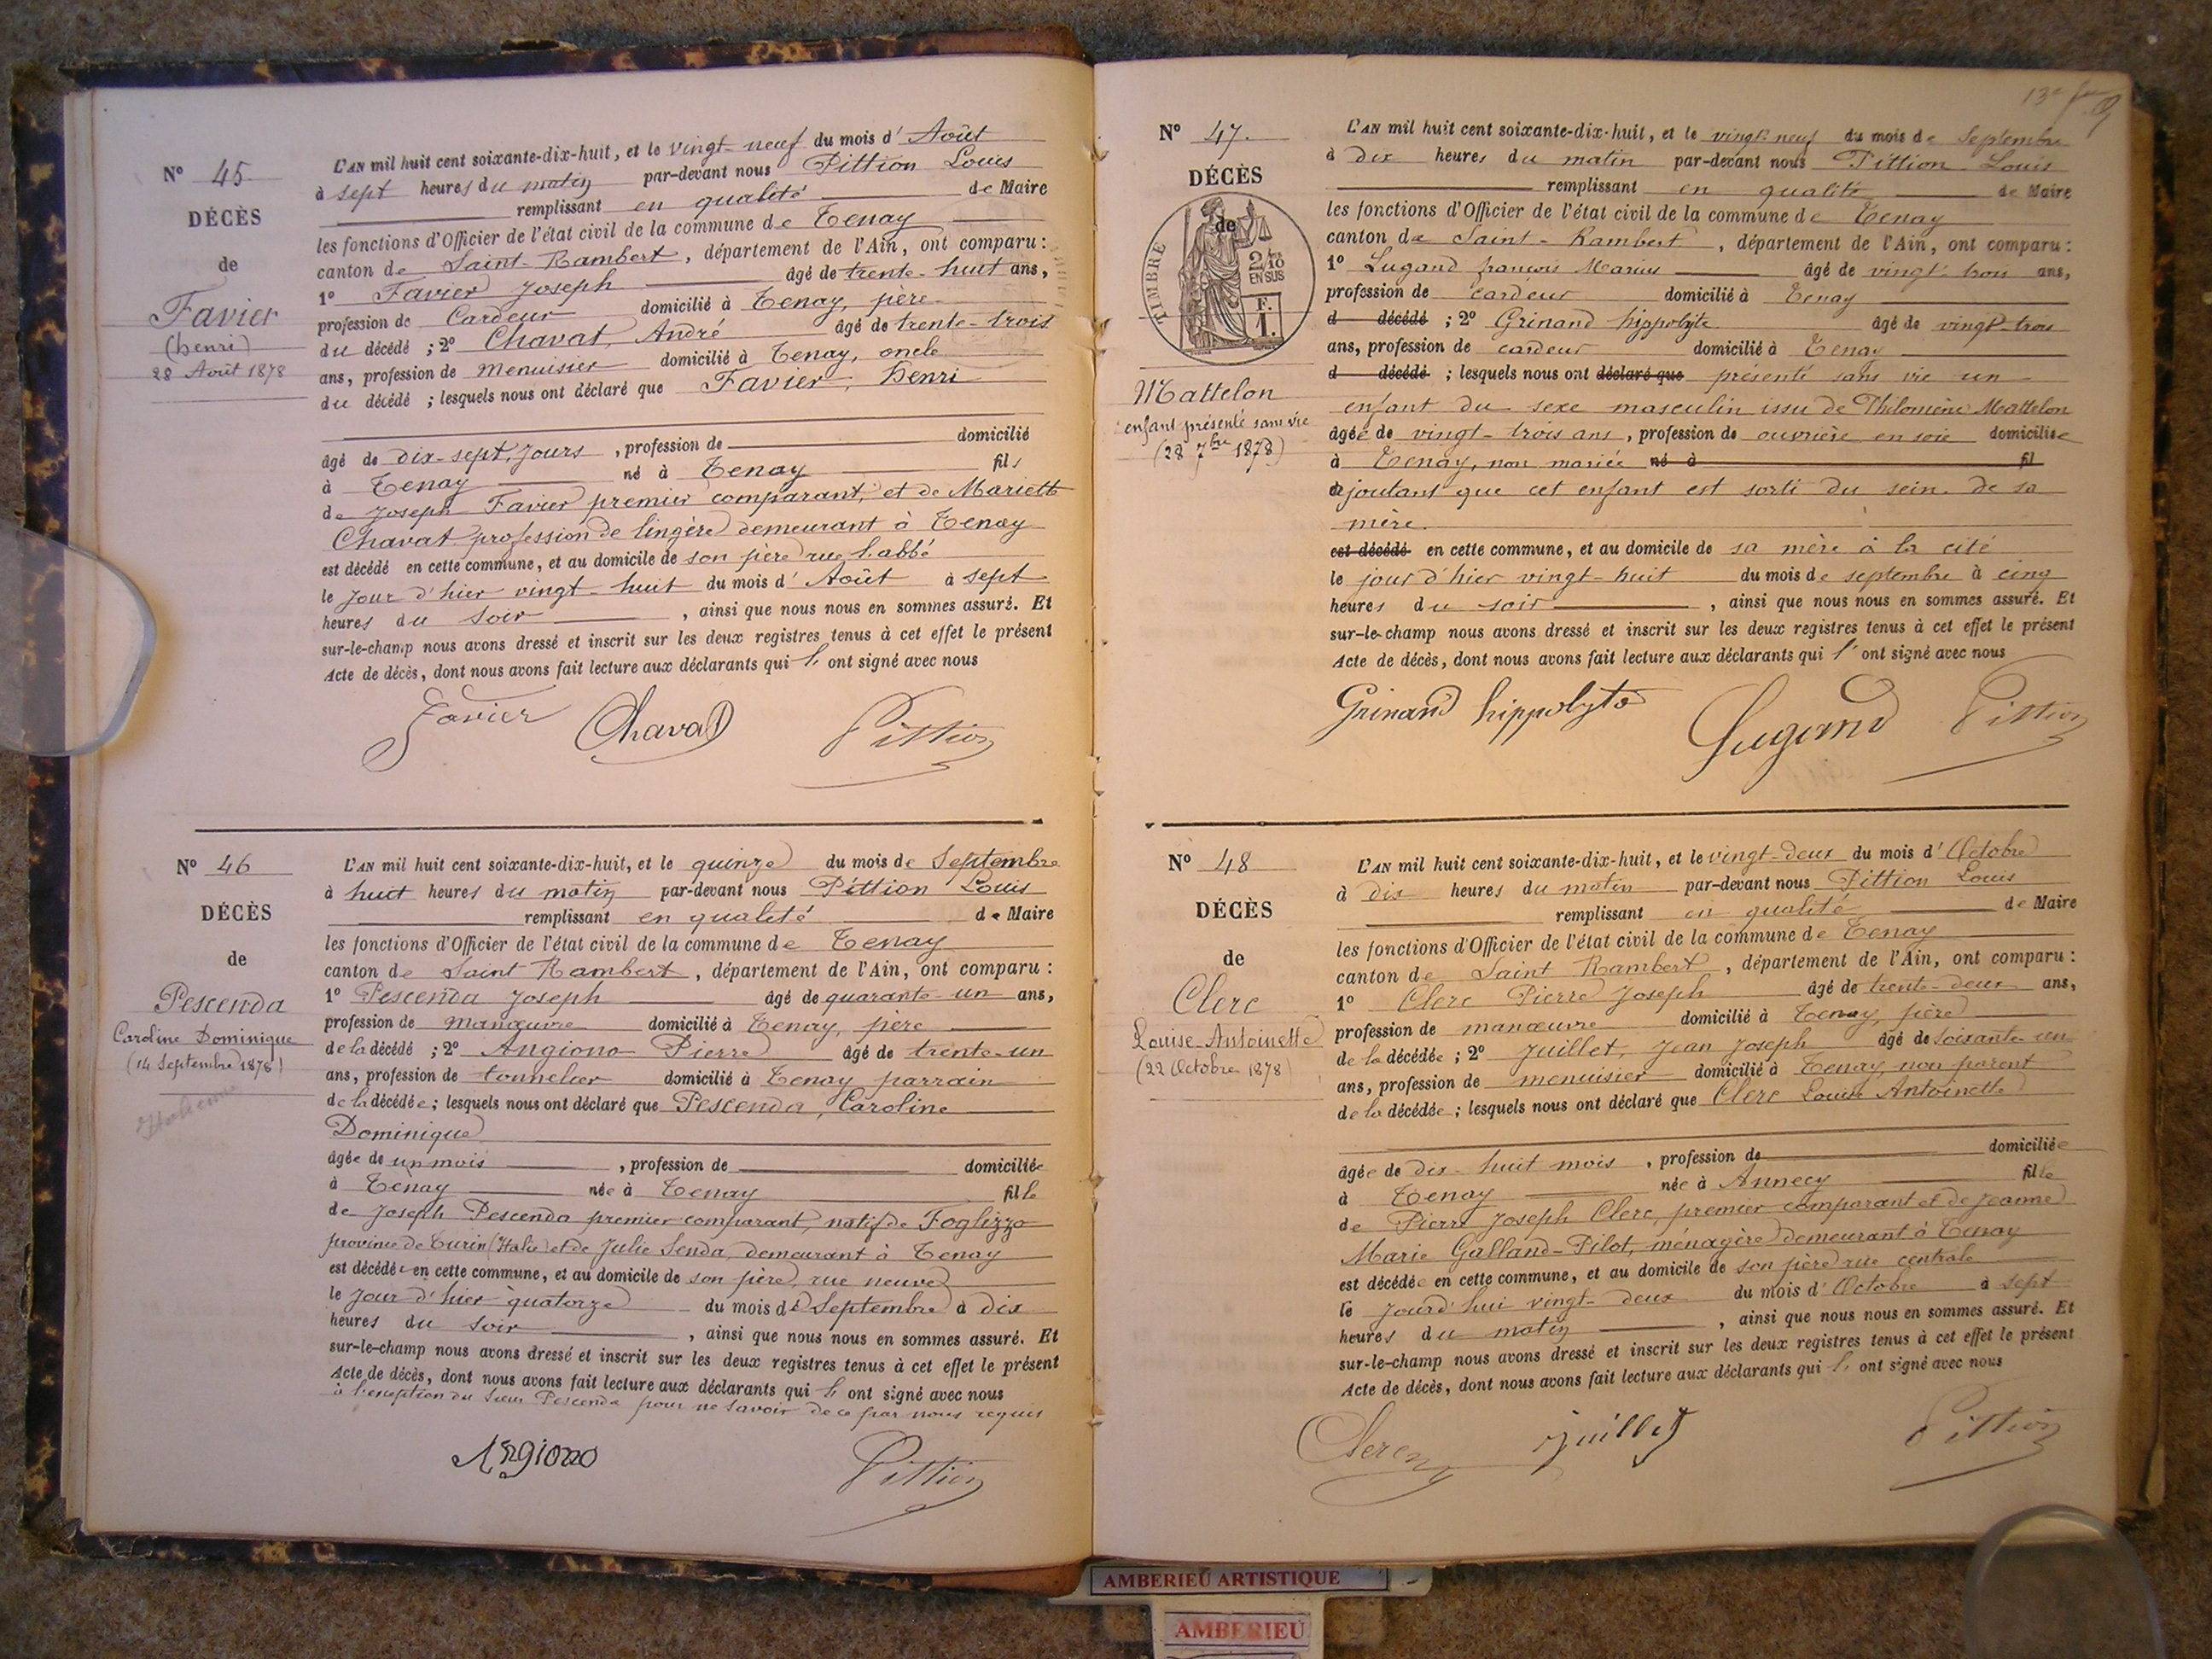 N° 45
DÉCÈS
de
Favier
(henri)
28 Août 1878
L'AN mil huit cent soixante-dix-huit, et le vingt-neuf du mois d' Août
à sept heures du matin par-devant nous Pittion Louis
remplissant en qualité de Maire
les fonctions d'Officier de l'état civil de la commune de Tenay
canton de Saint-Rambert, département de l'Ain, ont comparu :
1° Favier Joseph âgé de trente-huit ans,
profession de Cardeur domicilié à Tenay, père
du décédé ; 2° Chavat, André âgé de trente-trois
ans, profession de menuisier domicilié à Tenay, oncle
du décédé ; lesquels nous ont déclaré que Favier, henri
âgé de dix-sept jours, profession de domicilié
à Tenay né à Tenay fils
de Joseph Favier premier comparant, et de Mariette
Chavat profession de lingère demeurant à Tenay
est décédé en cette commune, et au domicile de son père rue l'abbé
le jour d'hier vingt-huit du mois d' Août à sept
heures du soir, ainsi que nous nous en sommes assuré. Et
sur-le-champ nous avons dressé et inscrit sur les deux registres tenus à cet effet le présent
Acte de décès, dont nous avons fait lecture aux déclarants qui l' ont signé avec nous
Favier Chavat Pittion
N° 46
DÉCÈS
de
Pescenda
Caroline Dominique
(14 Septembre 1878)
Italienne
L'AN mil huit cent soixante-dix-huit, et le quinze du mois de Septembre
à huit heures du matin par-devant nous Pittion Louis
remplissant en qualité de Maire
les fonctions d'Officier de l'état civil de la commune de Tenay
canton de Saint Rambert, département de l'Ain, ont comparu :
1° Pescenda Joseph âgé de quarante-un ans,
profession de manœuvre domicilié à Tenay, père
de la décédé ; 2° Angiono Pierre âgé de trente-un
ans, profession de tonnelier domicilié à Tenay parrain
de la décédée ; lesquels nous ont déclaré que Pescenda, Caroline
Dominique
âgée de un mois, profession de domiciliée
à Tenay née à Tenay fille
de Joseph Pescenda premier comparant, natif de Foglizzo
province de Turin (Italie) et de Julie Senda, demeurant à Tenay
est décédée en cette commune, et au domicile de son père, rue neuve
le jour d'hier quatorze du mois de Septembre à dix
heures du soir, ainsi que nous nous en sommes assuré. Et
sur-le-champ nous avons dressé et inscrit sur les deux registres tenus à cet effet le présent
Acte de décès, dont nous avons fait lecture aux déclarants qui l' ont signé avec nous
à l'exception du sieur Pescenda pour ne savoir de ce par nous requis
Angiono Pittion
13e
N° 47.
DÉCÈS
de
TIMBRE
2/10
EN SUS
F.
1.
Mattelon
enfant présenté sans vie
(28 7bre 1878)
L'AN mil huit cent soixante-dix-huit, et le vingt-neuf du mois de Septembre
à dix heures du matin par-devant nous Pittion Louis
remplissant en qualité de Maire
les fonctions d'Officier de l'état civil de la commune de Tenay
canton de Saint-Rambert, département de l'Ain, ont comparu :
1° Lugand françois Marius âgé de vingt-trois ans,
profession de cardeur domicilié à Tenay
d décédé ; 2° Grinand hippolyte âgé de vingt-trois
ans, profession de cardeur domicilié à Tenay
d décédé ; lesquels nous ont déclaré que présenté sans vie un
enfant du sexe masculin issu de Philomène Mattelon
âgée de vingt-trois ans, profession de ouvrière en soie domiciliée
à Tenay, non mariée né à fil
ajoutant que cet enfant est sorti du sein de sa
mère.
est décédé en cette commune, et au domicile de sa mère à la cité
le jour d'hier vingt-huit du mois de septembre à cinq
heures du soir, ainsi que nous nous en sommes assuré. Et
sur-le-champ nous avons dressé et inscrit sur les deux registres tenus à cet effet le présent
Acte de décès, dont nous avons fait lecture aux déclarants qui l' ont signé avec nous
Grinand hippolyte Lugand Pittion
N° 48
DÉCÈS
de
Clerc
Louise-Antoinette
(22 Octobre 1878)
L'AN mil huit cent soixante-dix-huit, et le vingt-deux du mois d' Octobre
à dix heures du matin par-devant nous Pittion Louis
remplissant en qualité de Maire
les fonctions d'Officier de l'état civil de la commune de Tenay
canton de Saint Rambert, département de l'Ain, ont comparu :
1° Clerc Pierre Joseph âgé de trente-deux ans,
profession de manœuvre domicilié à Tenay, père
de la décédée ; 2° Juillet, Jean Joseph âgé de soixante-un
ans, profession de menuisier domicilié à Tenay non parent
de la décédée ; lesquels nous ont déclaré que Clerc Louise Antoinette
âgée de dix-huit mois, profession de domiciliée
à Tenay née à Annecy fille
de Pierre Joseph Clerc, premier comparant et de Jeanne
Marie Galland-Pilot, ménagère demeurant à Tenay
est décédée en cette commune, et au domicile de son père rue centrale
le jourd'hui vingt-deux du mois d' Octobre à sept
heures du matin, ainsi que nous nous en sommes assuré. Et
sur-le-champ nous avons dressé et inscrit sur les deux registres tenus à cet effet le présent
Acte de décès, dont nous avons fait lecture aux déclarants qui l' ont signé avec nous
Clerc Juillet Pittion
AMBERIEU ARTISTIQUE
AMBERIEU